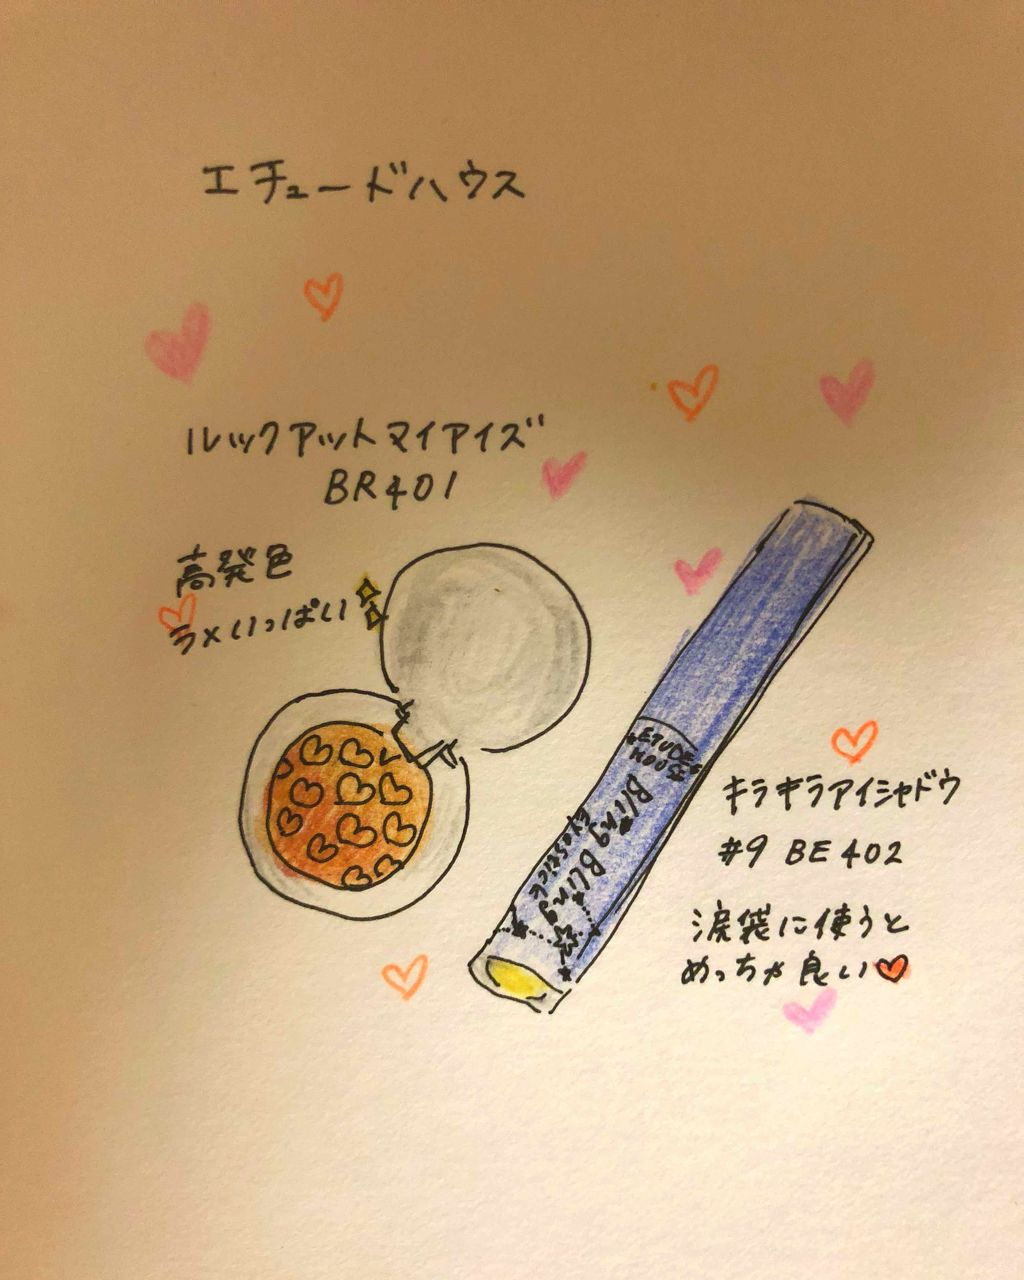 エチュードハウス
ルックアットマイアイズ
BR401
高発色
ラメいっぱい
ETUDE
HOUSE
Bling Bling
Eye Stick
キラキラアイシャドウ
#9 BE402
涙袋に使うと
めっちゃ良い